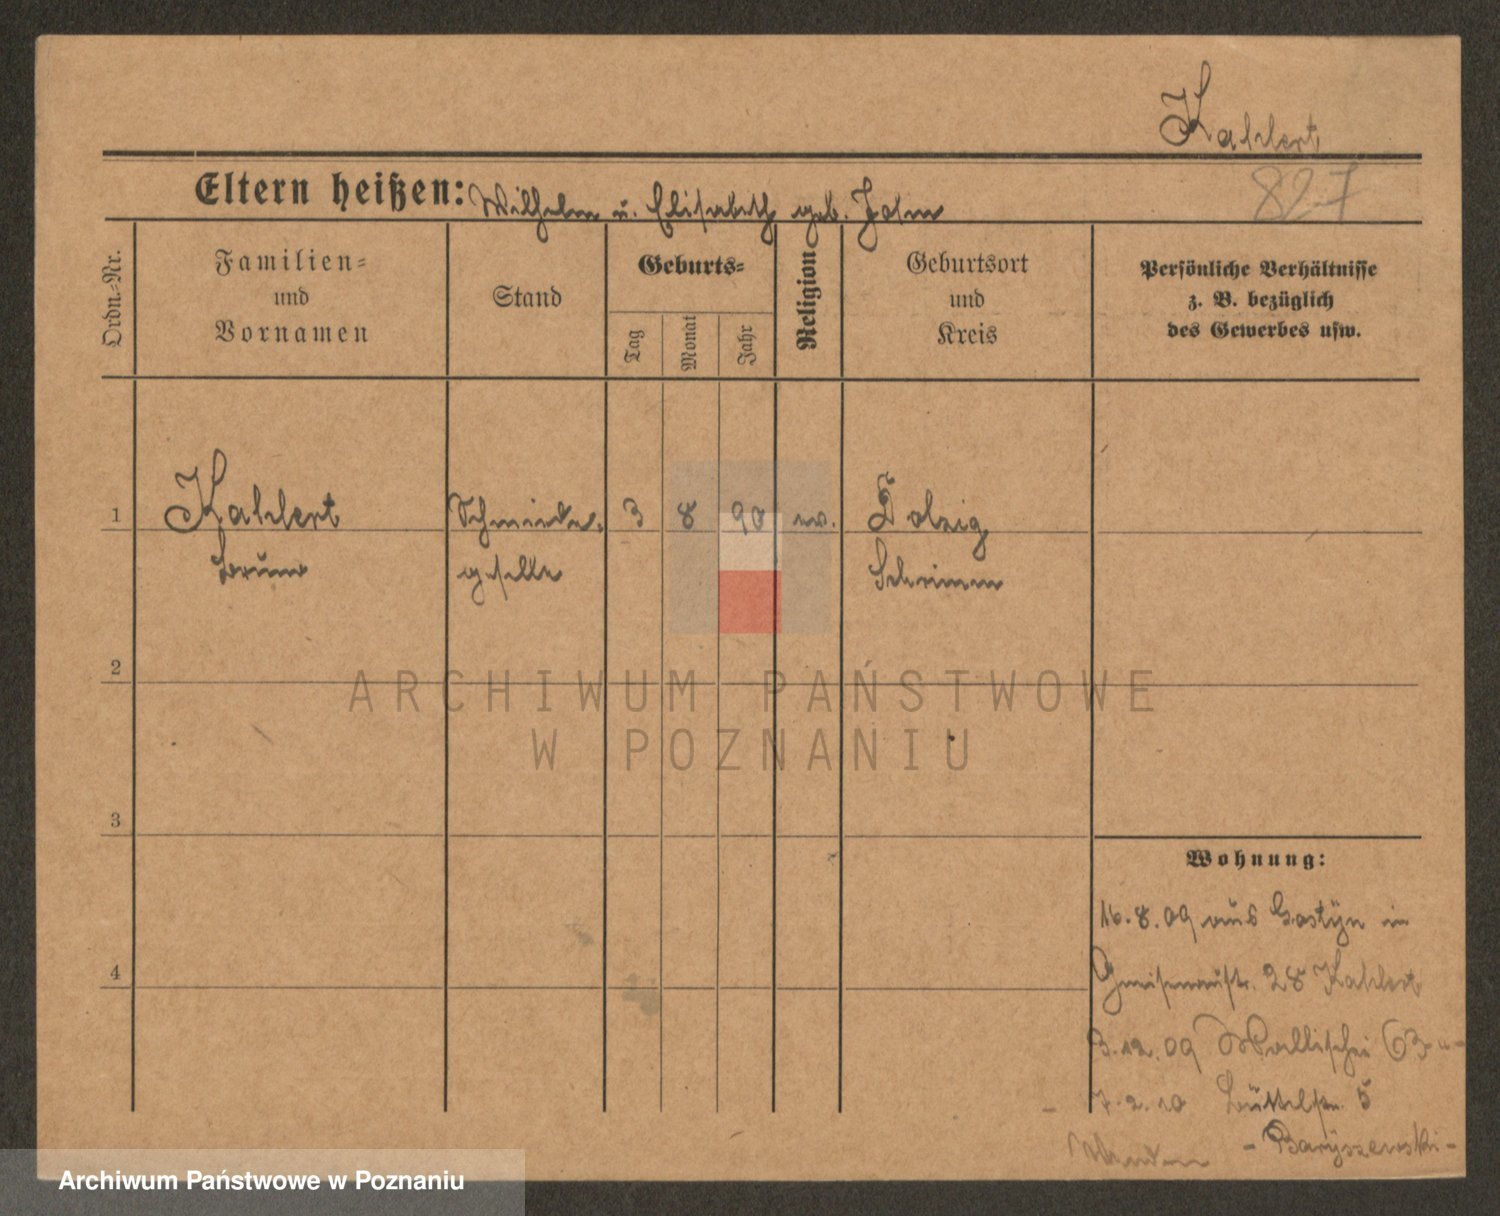 Kahlert
Eltern heißen: Wilhelm u. Elisabeth geb. Jahn
827
Ordn.-Nr.
Familien-
und
Vornamen
Stand
Geburts-
Tag
Monat
Jahr
Religion
Geburtsort
und
Kreis
Persönliche Verhältnisse
z. B. bezüglich
des Gewerbes usw.
1 Kahlert Schmiede- 3 8 90 ev. Dolzig
Bruno geselle Schrimm
ARCHIWUM PAŃSTWOWE
W POZNANIU
2
3
4
Wohnung:
16.8.09 aus Gostyn in
Gneisenaustr. 28 Kahlert
3.12.09 Wallischei 63 -"-
7.2.10 Büttelstr. 5
- Baryszewski -
Archiwum Państwowe w Poznaniu